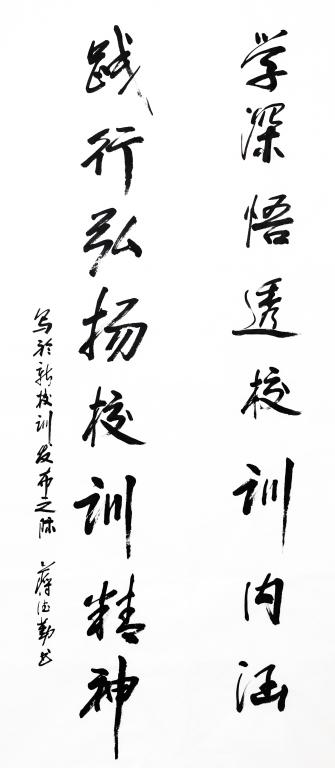 学深悟透校训内涵
践行弘扬校训精神
写于新校训发布之际 蒋德勤书